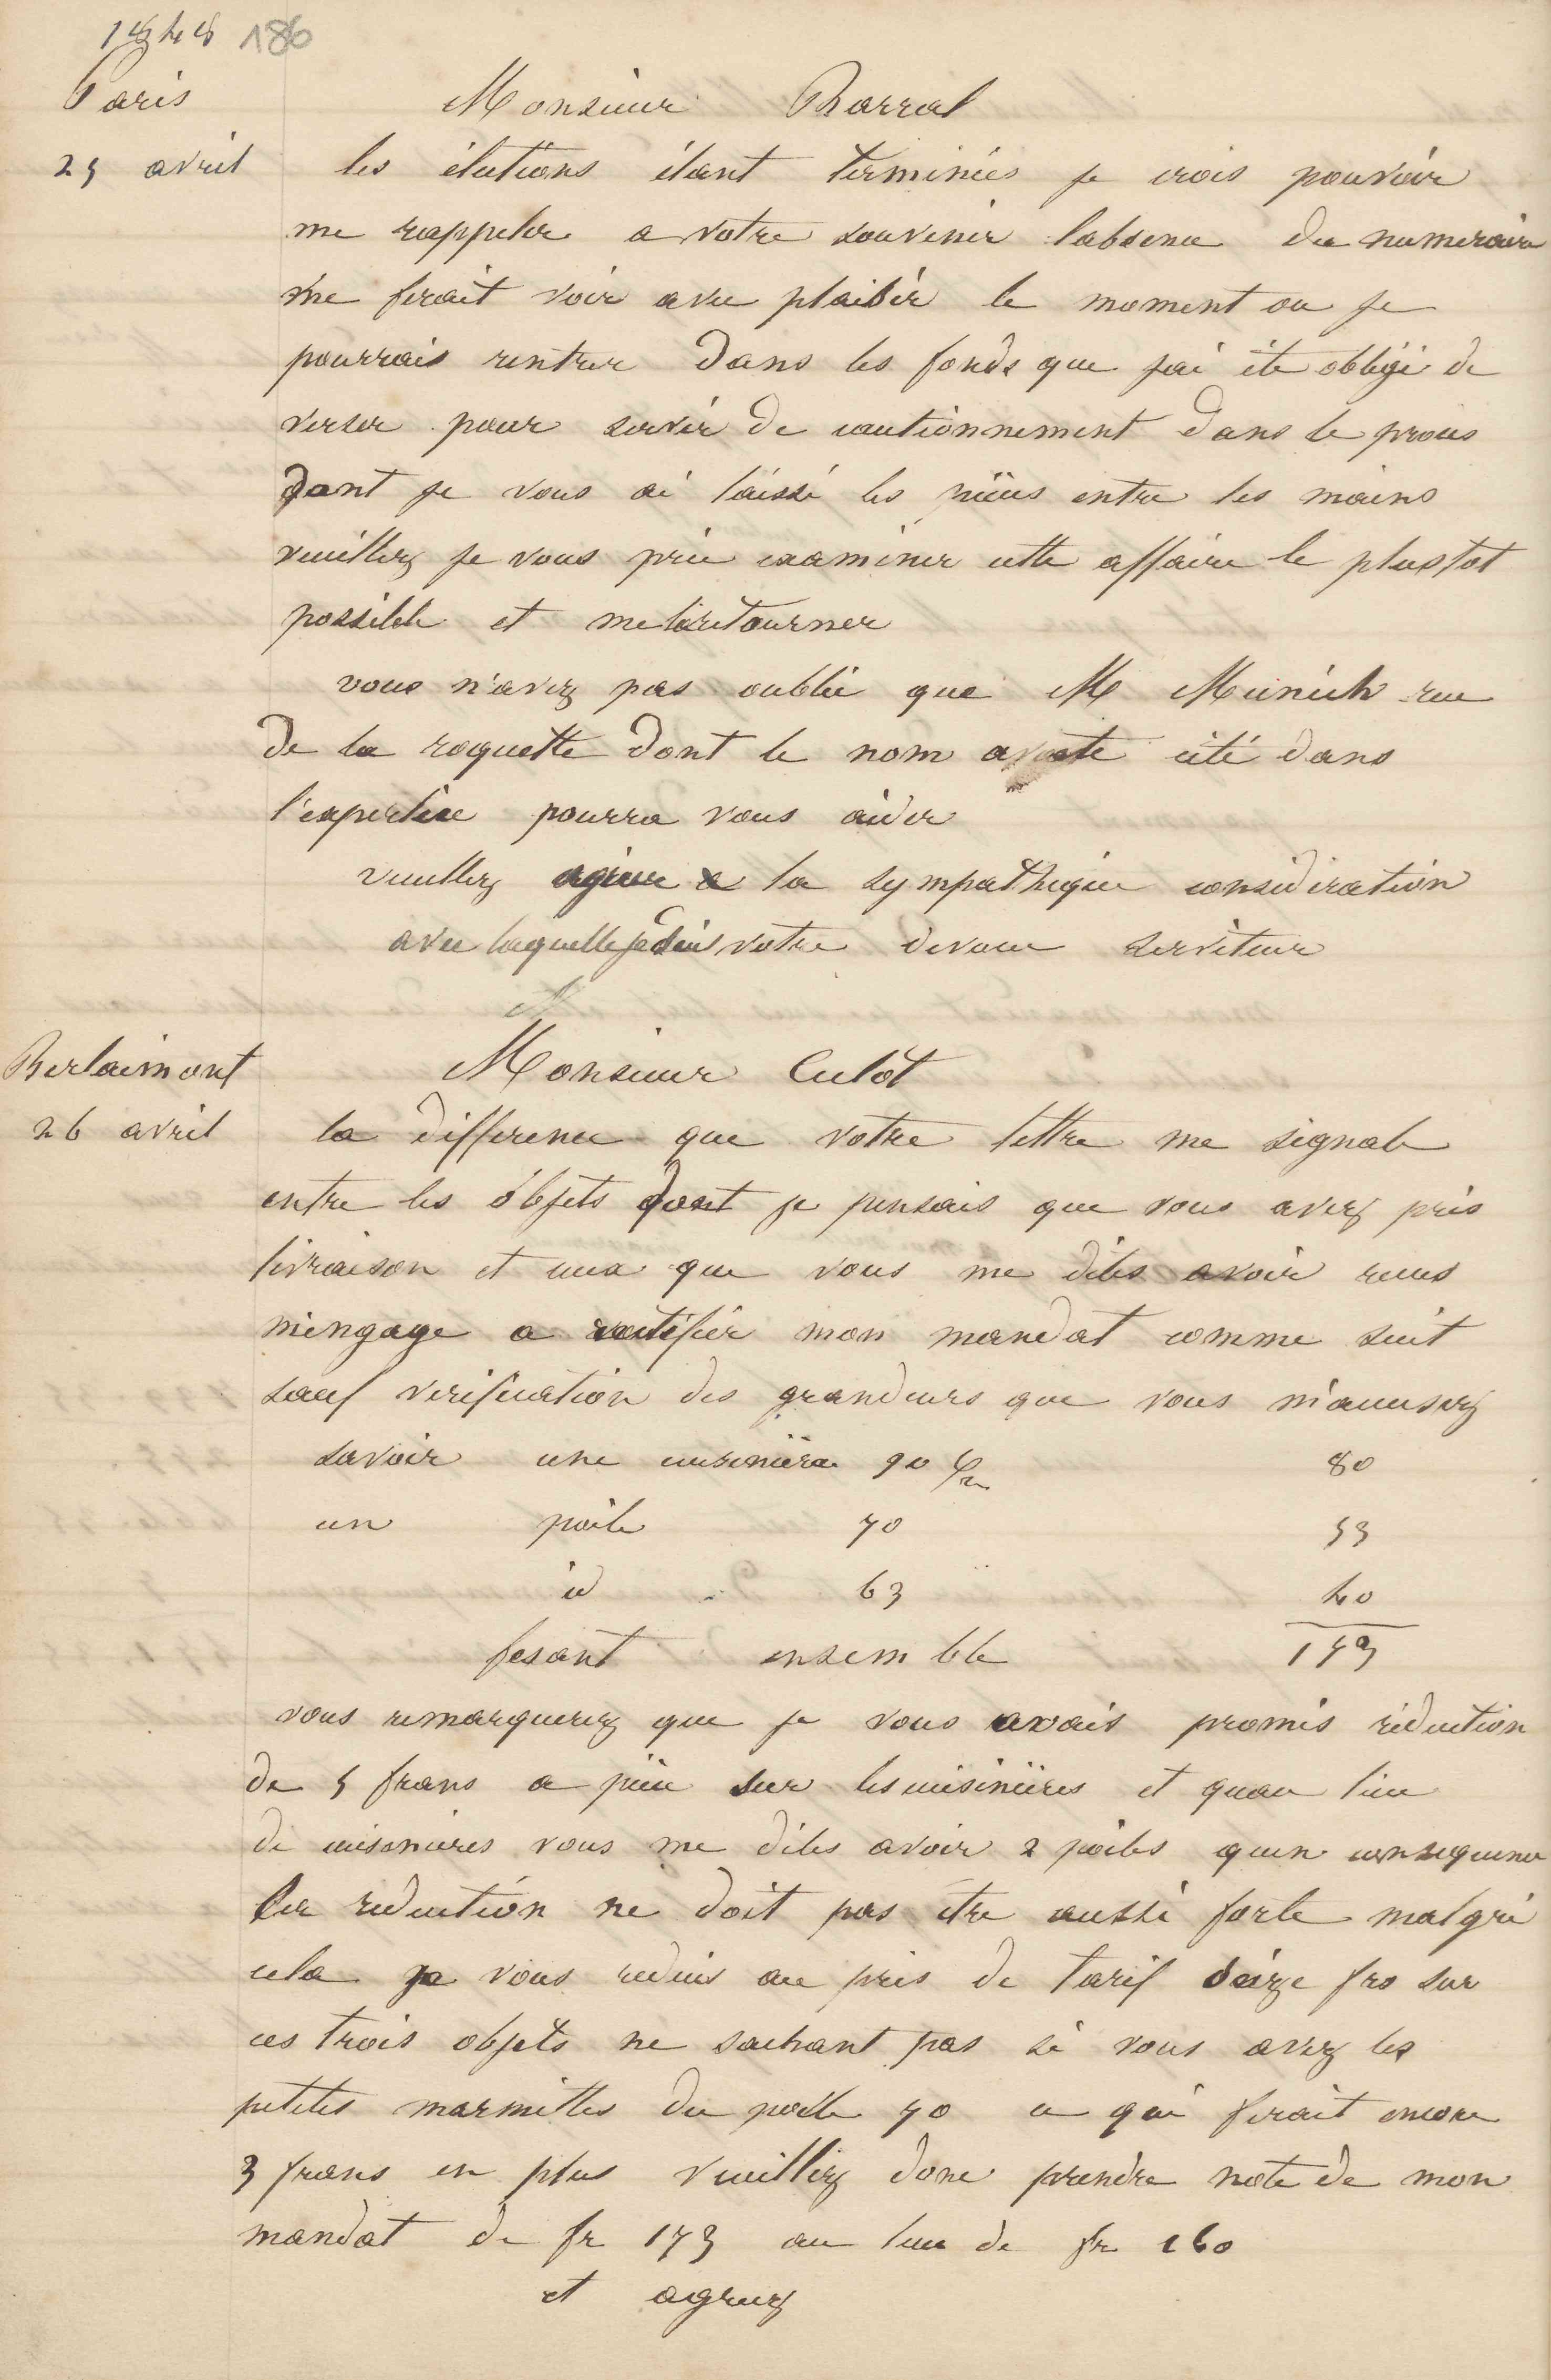 1848 186
Paris
Monsieur Barral
25 avril les élections étant terminées je crois pouvoir
me rappeler a votre souvenir labsence du numeraire
me ferait voir avec plaisir le moment ou je
pourrais rentrer dans les fonds que jai été obligé de
verser pour servir de cautionnement dans le procès
dont je vous ai laissé les pièces entre les mains
veuillez je vous prie examiner cette affaire le plustot
possible et me la retourner
vous n'avez pas oublié que M Munich rue
de la roquette dont le nom a été cité dans
l'expertise pourra vous aider
veuillez agréer la sympathique consideration
avec laquelle je suis votre devoué serviteur
Berlaimont
Monsieur Culot
26 avril la difference que votre lettre me signale
entre les objets dont je pensais que vous avez pris
livraison et ceux que vous me dites avoir recus
m'engage a rectifier mon mandat comme suit
sauf verification des grandeurs que vous m'accusez
savoir une cuisinière 90 c/m 80
un poële 70 53
id 63 40
fesant ensemble 173
vous remarquerez que je vous avais promis réduction
de 5 francs a pièce sur les cuisinières et quau lieu
de cuisinieres vous me dites avoir 2 poëles quen consequence
la reduction ne doit pas etre aussi forte malgré
cela je vous reduis au prix de tarif seize frs sur
ces trois objets ne sachant pas si vous avez les
petites marmittes du poële 70 ce qui ferait encore
3 francs en plus veuillez donc prendre note de mon
mandat de fr 173 au lieu de fr 160
et agreez